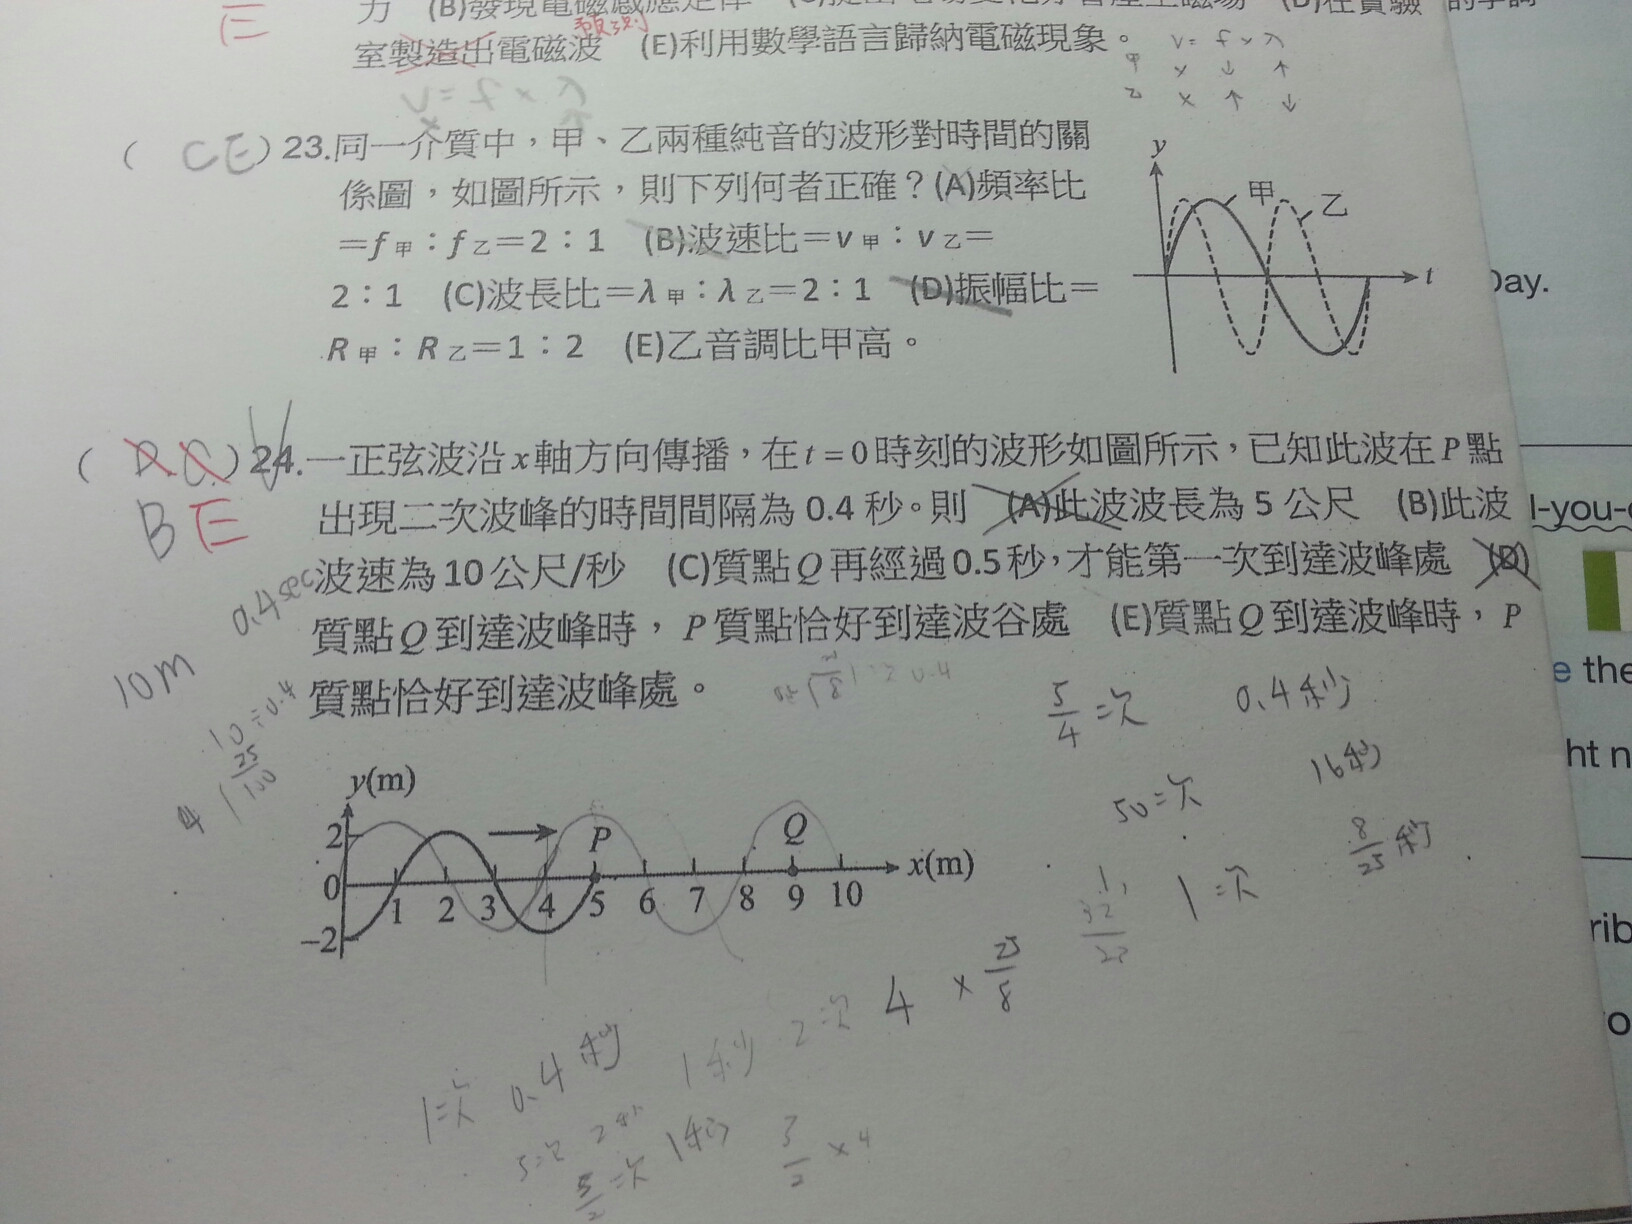 室製造出電磁波 (E)利用數學語言歸納電磁現象。
預測
E
v = f × λ
甲 × ↓ ↑
乙 × ↑ ↓
v = f × λ
( CE ) 23.同一介質中，甲、乙兩種純音的波形對時間的關
係圖，如圖所示，則下列何者正確？(A)頻率比
＝f甲：f乙＝2：1 (B)波速比＝v甲：v乙＝
2：1 (C)波長比＝λ甲：λ乙＝2：1 (D)振幅比＝
R甲：R乙＝1：2 (E)乙音調比甲高。
y
甲
乙
t
Day.
( ) 24.一正弦波沿 x 軸方向傳播，在 t = 0 時刻的波形如圖所示，已知此波在 P 點
BE
出現二次波峰的時間間隔為 0.4 秒。則 (A)此波波長為 5 公尺 (B)此波
波速為 10 公尺/秒 (C)質點 Q 再經過 0.5 秒，才能第一次到達波峰處 (D)
質點 Q 到達波峰時，P 質點恰好到達波谷處 (E)質點 Q 到達波峰時，P
質點恰好到達波峰處。
l-you-
e the
ht n
0.4 sec
10m
10÷0.4
25
100
4
5/4 次 0.4秒
50次 16秒
1次 8/25 秒
y(m)
2
0
-2
1 2 3 4 5 6 7 8 9 10
P
Q
x(m)
4 × 25/8
1次 0.4秒 1秒
5次 2秒
5/2 次 1秒